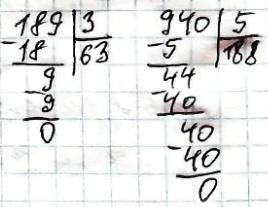 189 | 3
-18 | 63
9
-9
0
940 | 5
-5 | 188
44
-40
40
-40
0